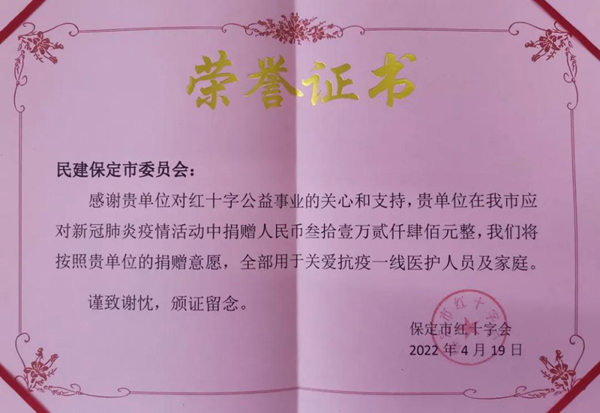 荣誉证书
民建保定市委员会：
感谢贵单位对红十字公益事业的关心和支持，贵单位在我市应
对新冠肺炎疫情活动中捐赠人民币叁拾壹万贰仟肆佰元整，我们将
按照贵单位的捐赠意愿，全部用于关爱抗疫一线医护人员及家庭。
谨致谢忱，颁证留念。
保定市红十字会
2022年4月19日